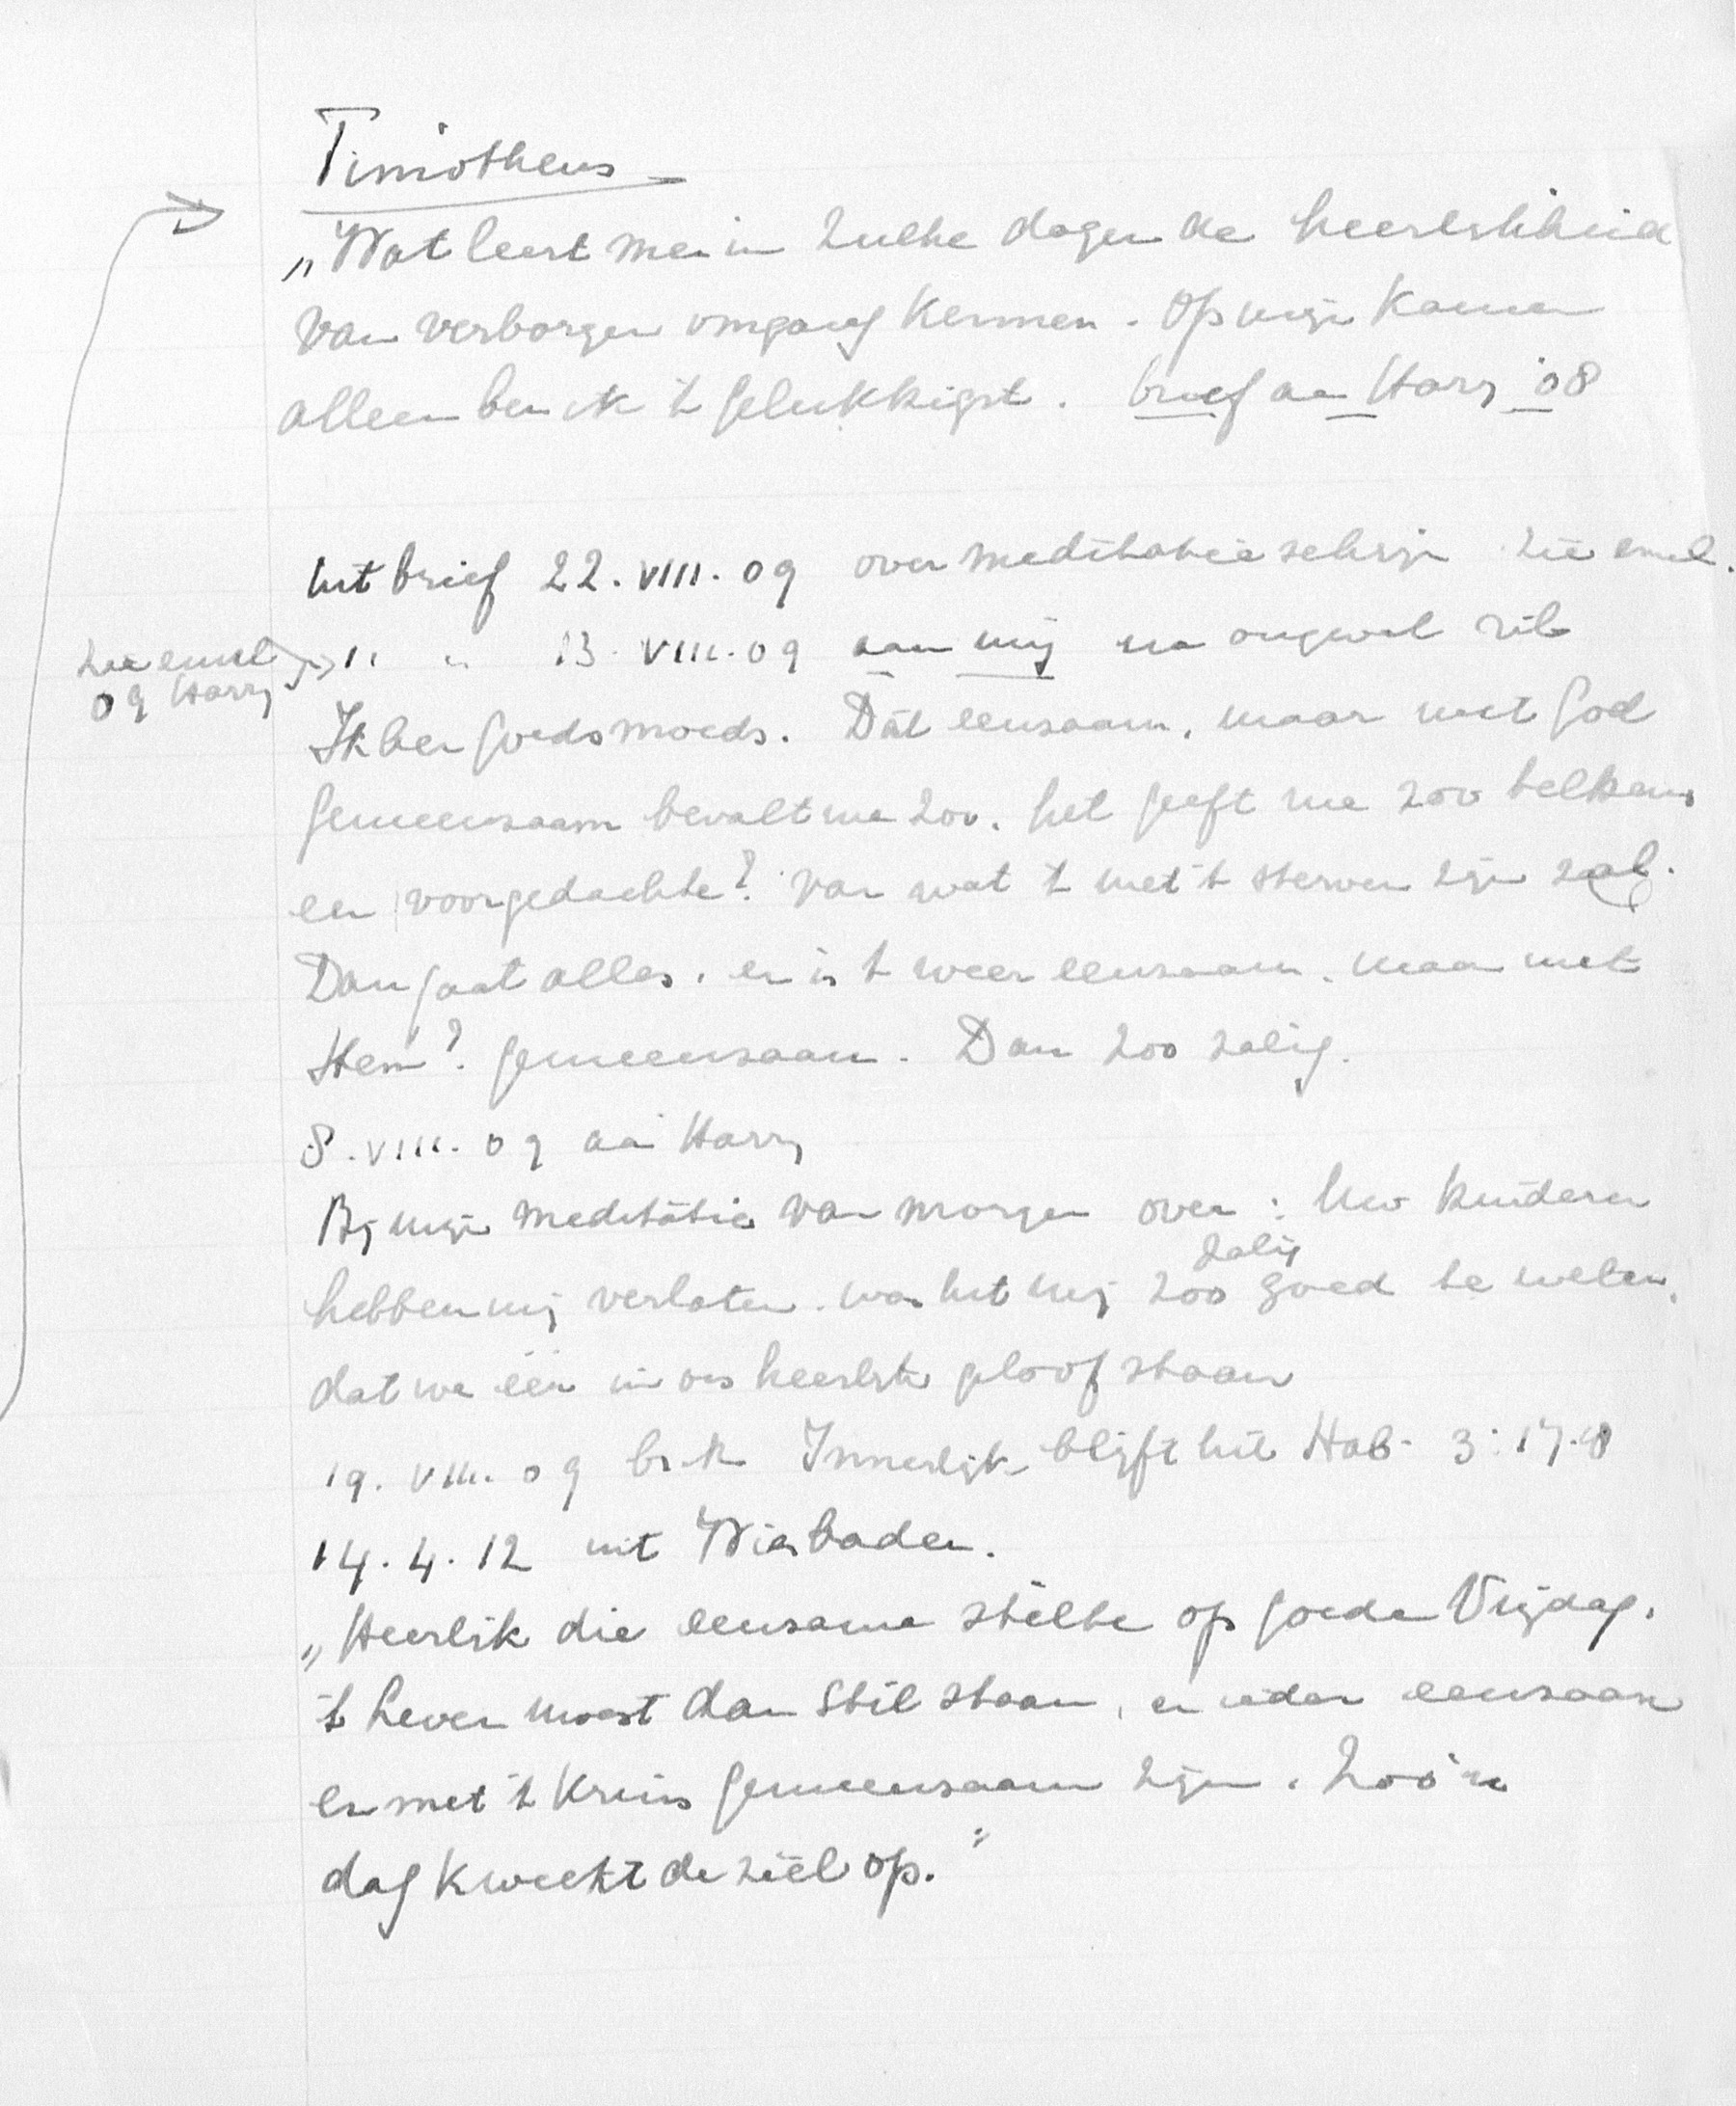 Timotheus
„Wat leert men in zulke dagen de heerlikheid
van verborgen omgang kennen. Op mijn kamer
alleen ben ik 't gelukkigst. brief aan Harry '08
Uit brief 22.VIII.09 over meditatie schrijven zie envel.
zie envel
09 Harry
" " 13.VIII.09 aan mij na ongeval rib
Ik ben goedsmoeds. Dat eensaam, maar met God
gemeensaam bevalt me zoo. het geeft me zoo telkens
een voorgedachte? van wat 't met 't sterven zijn zal.
Dan gaat alles. en is 't weer eensaam. maar met
Hem? gemeensaam. Dan zoo zalig.
8.VIII.09 aan Harry
Bij mijn meditatie van morgen over: Uw kinderen
zalig
hebben mij verlaten. was het mij zoo goed te weten,
dat we één in ons heerlik geloof staan
19.VIII.09 br. K Innerlijk blijft het Hab. 3:17.18
14.4.12 uit Wiesbaden.
„Heerlik die eensame stilte op Goede Vrijdag.
't Leven moest dan stil staan, en ieder eensaam
en met 't Kruis gemeensaam zijn. Zoo'n
dag kweekt de ziel op."